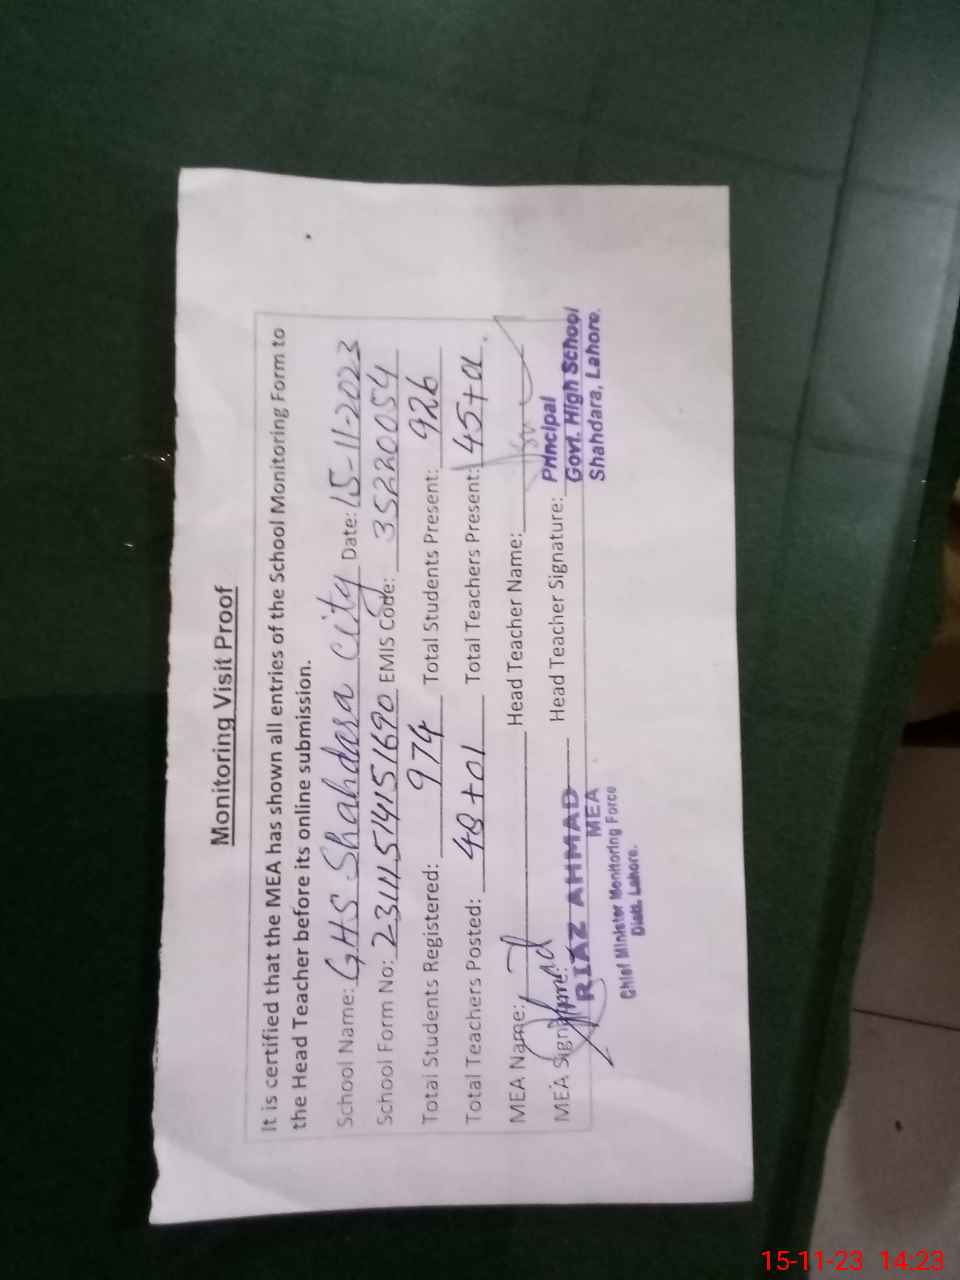 Monitoring Visit Proof
It is certified that the MEA has shown all entries of the School Monitoring Form to
the Head Teacher before its online submission.
School Name: GHS Shahdara City Date: 15-11-2023
School Form No: 231115141515690 EMIS Code: 35220054
Total Students Registered: 974 Total Students Present: 926
Total Teachers Posted: 48+01 Total Teachers Present: 45+01
MEA Name: Head Teacher Name:
MEA Signature: Head Teacher Signature:
RIAZ AHMAD
MEA
Chief Minister Monitoring Force
Distt. Lahore.
Principal
Govt. High School
Shahdara, Lahore.
15-11-23 14:23